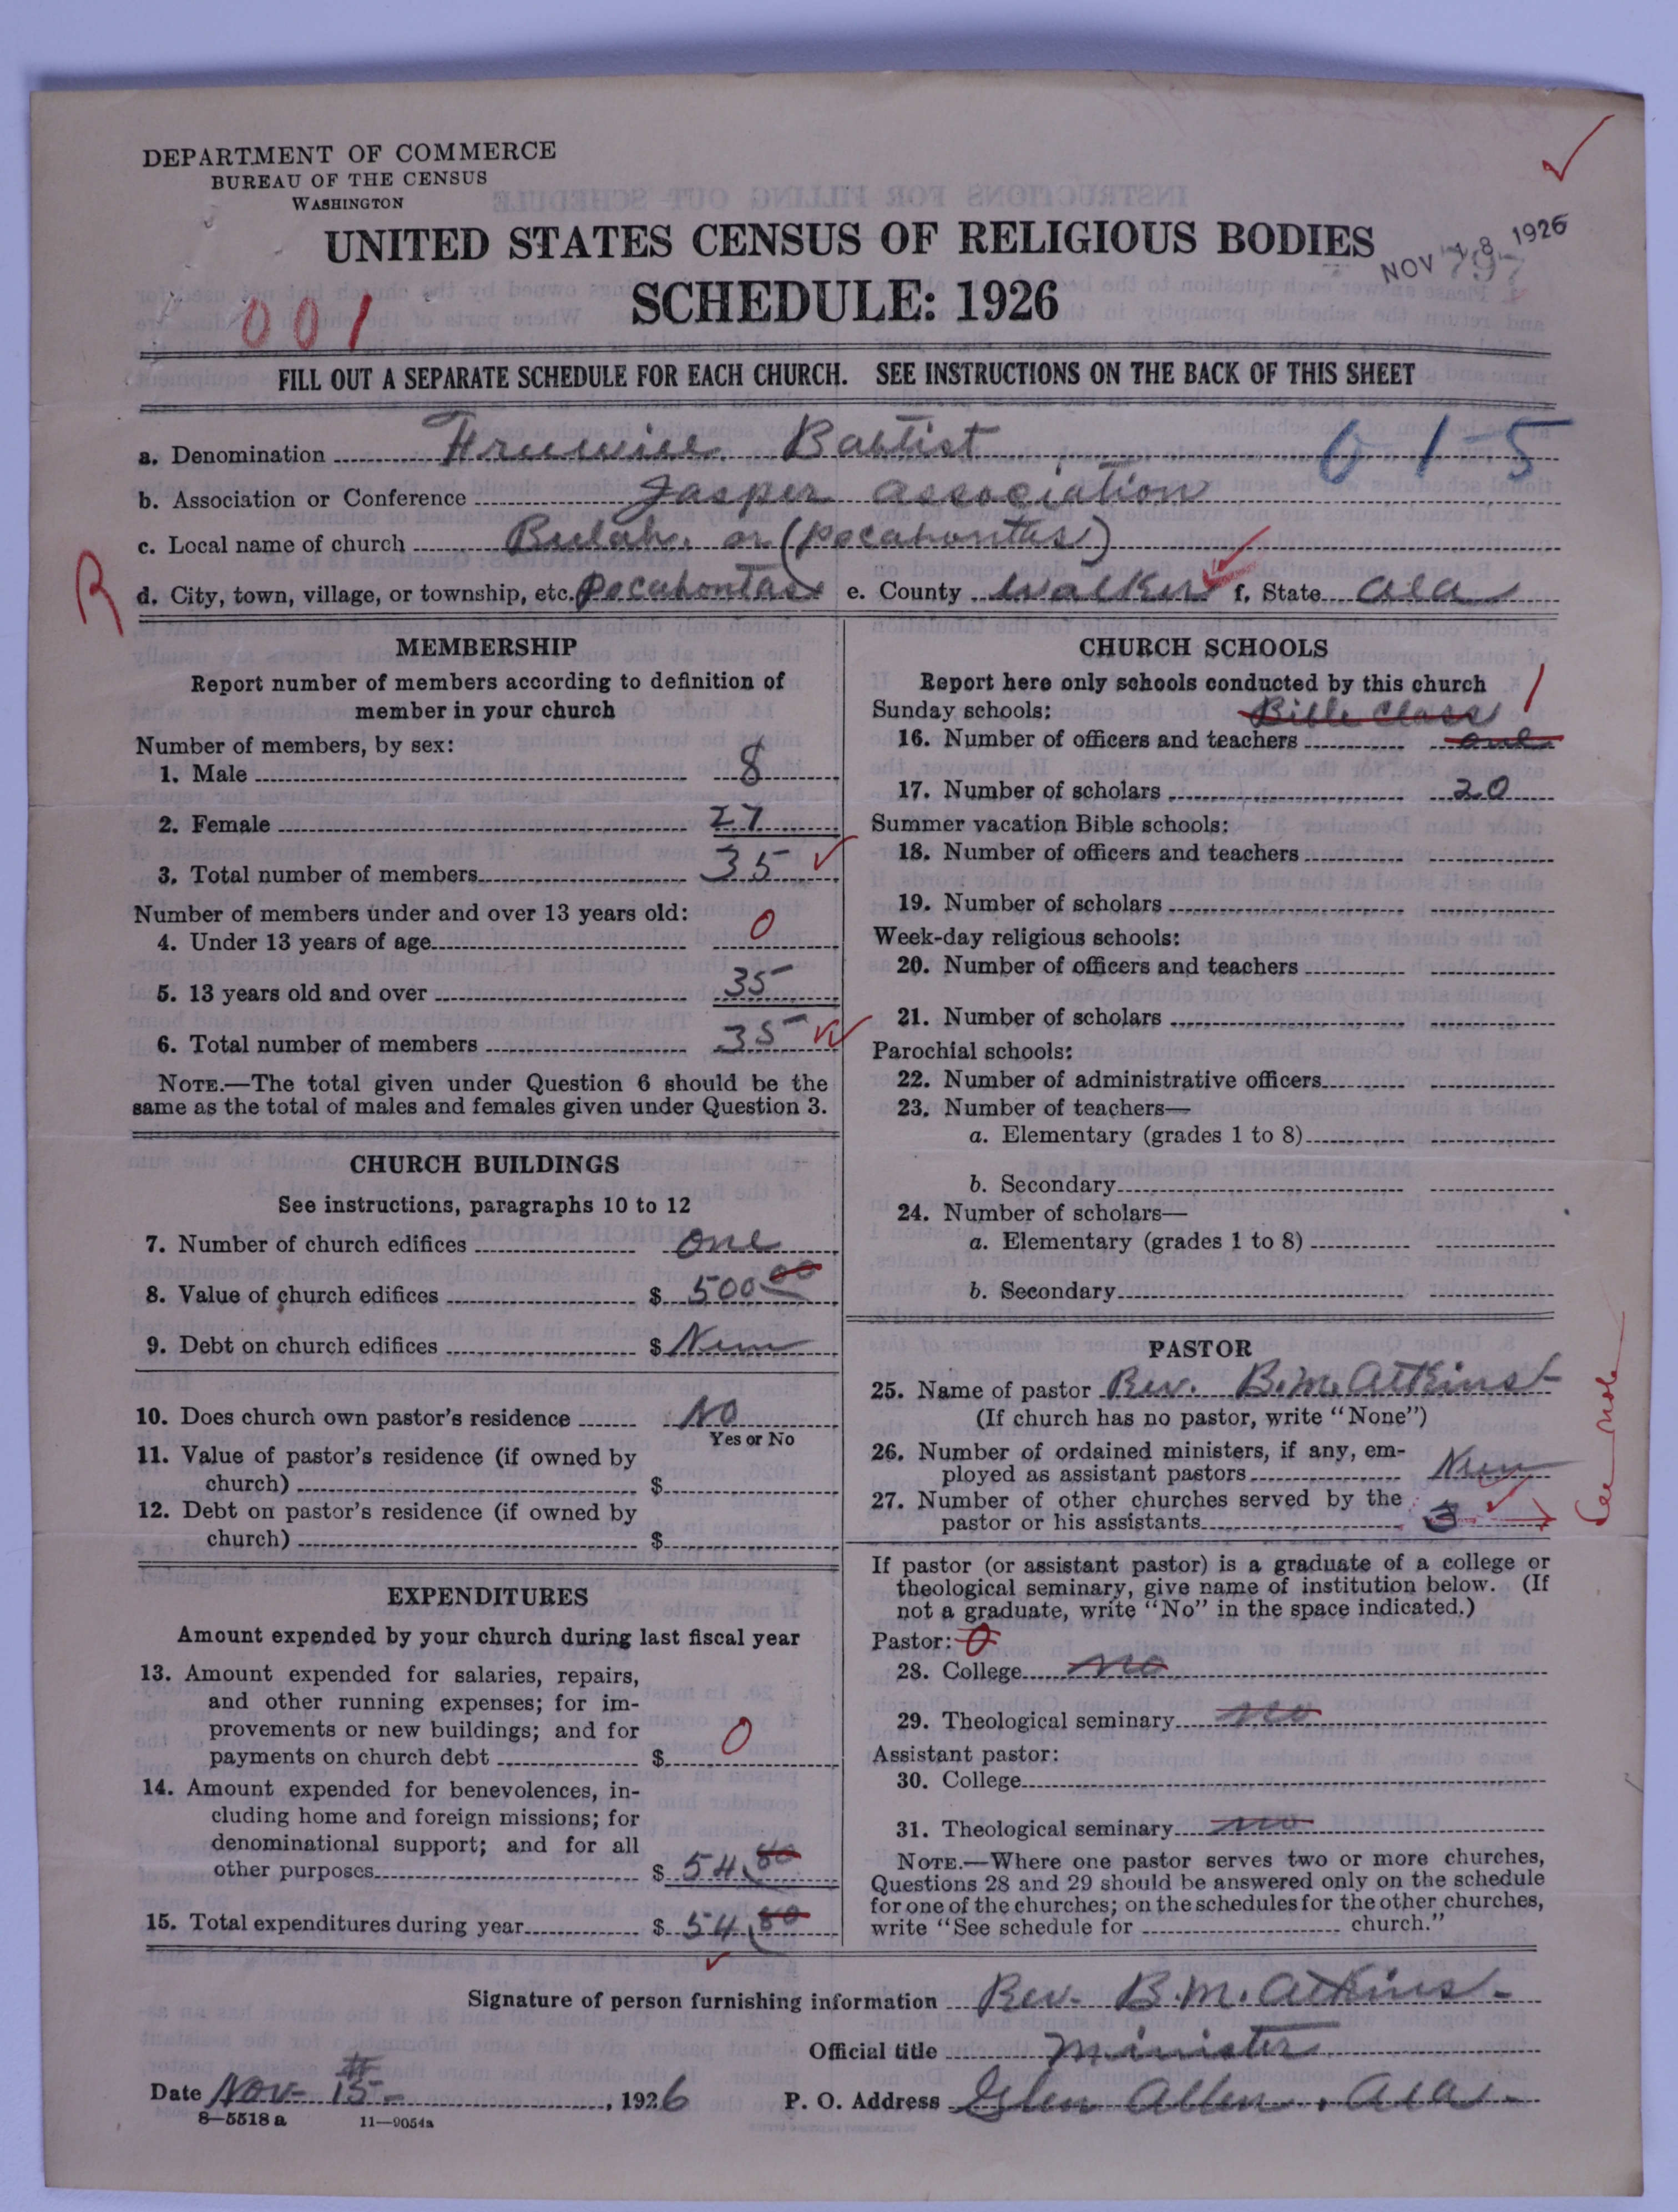 DEPARTMENT OF COMMERCE
BUREAU OF THE CENSUS
WASHINGTON
UNITED STATES CENSUS OF RELIGIOUS BODIES
NOV 18 1926
SCHEDULE: 1926
001
FILL OUT A SEPARATE SCHEDULE FOR EACH CHURCH. SEE INSTRUCTIONS ON THE BACK OF THIS SHEET
a. Denomination Freewill Babtist 0 1-5
b. Association or Conference Jasper association
c. Local name of church Bulah. or (Pocahontas)
R
d. City, town, village, or township, etc. Pocahontas e. County Walker f. State Ala
MEMBERSHIP
Report number of members according to definition of
member in your church
Number of members, by sex:
1. Male 8
2. Female 27
3. Total number of members 35
Number of members under and over 13 years old:
4. Under 13 years of age 0
5. 13 years old and over 35
6. Total number of members 35
NOTE.—The total given under Question 6 should be the
same as the total of males and females given under Question 3.
CHURCH BUILDINGS
See instructions, paragraphs 10 to 12
7. Number of church edifices one
8. Value of church edifices $ 500.00
9. Debt on church edifices $ Nun
10. Does church own pastor's residence No
Yes or No
11. Value of pastor's residence (if owned by
church) $
12. Debt on pastor's residence (if owned by
church) $
EXPENDITURES
Amount expended by your church during last fiscal year
13. Amount expended for salaries, repairs,
and other running expenses; for im-
provements or new buildings; and for
payments on church debt $ 0
14. Amount expended for benevolences, in-
cluding home and foreign missions; for
denominational support; and for all
other purposes $ 54.80
15. Total expenditures during year $ 54.80
CHURCH SCHOOLS
Report here only schools conducted by this church
Sunday schools: Bible Class 1
16. Number of officers and teachers one
17. Number of scholars 20
Summer vacation Bible schools:
18. Number of officers and teachers
19. Number of scholars
Week-day religious schools:
20. Number of officers and teachers
21. Number of scholars
Parochial schools:
22. Number of administrative officers
23. Number of teachers—
a. Elementary (grades 1 to 8)
b. Secondary
24. Number of scholars—
a. Elementary (grades 1 to 8)
b. Secondary
PASTOR
25. Name of pastor Rev. B.M. Atkins
(If church has no pastor, write "None")
26. Number of ordained ministers, if any, em-
ployed as assistant pastors Nun
27. Number of other churches served by the
pastor or his assistants 3
See note
If pastor (or assistant pastor) is a graduate of a college or
theological seminary, give name of institution below. (If
not a graduate, write "No" in the space indicated.)
Pastor: 0
28. College no
29. Theological seminary no
Assistant pastor:
30. College
31. Theological seminary no
NOTE.—Where one pastor serves two or more churches,
Questions 28 and 29 should be answered only on the schedule
for one of the churches; on the schedules for the other churches,
write "See schedule for church."
Signature of person furnishing information Rev. B.M. Atkins.
Official title Minister
Date Nov- 15 -, 1926 P. O. Address Glen Allen, Ala.
8—5518 a 11—9054a